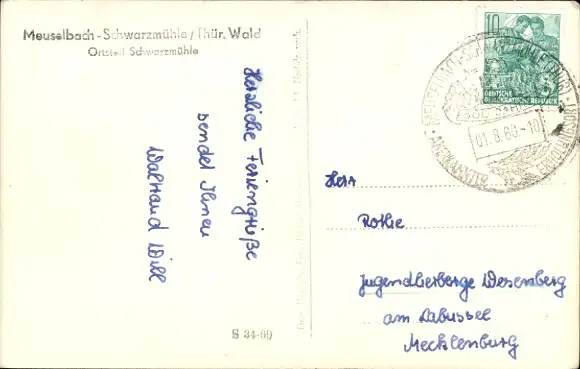 Meuselbach-Schwarzmühle/Thür. Wald
Ortsteil Schwarzmühle
Herzliche Feriengrüße
sendet Ihnen
Waltraud Will
S 34-60
10
DEUTSCHE
DEMOKRATISCHE REPUBLIK
01.8.60-10
ANERKANNTER
Herr
Rothe
Jugendherberge Wesenberg
am Labussel
Mecklenburg